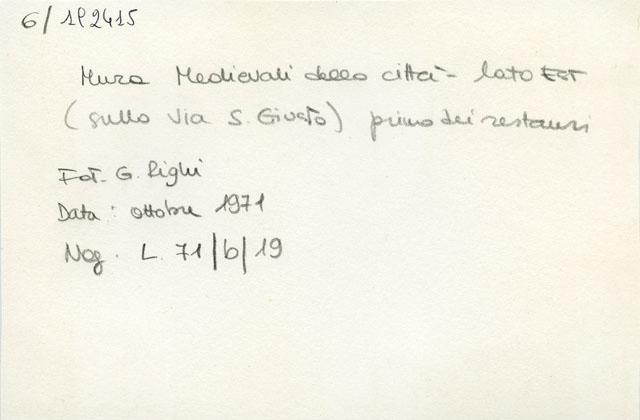 6/ 1P2415
Mura Medievali della città - lato EST
(sulla Via S. Giusto) prima dei restauri
Fot. G. Righi
Data: ottobre 1971
Neg. L. 71/b/19